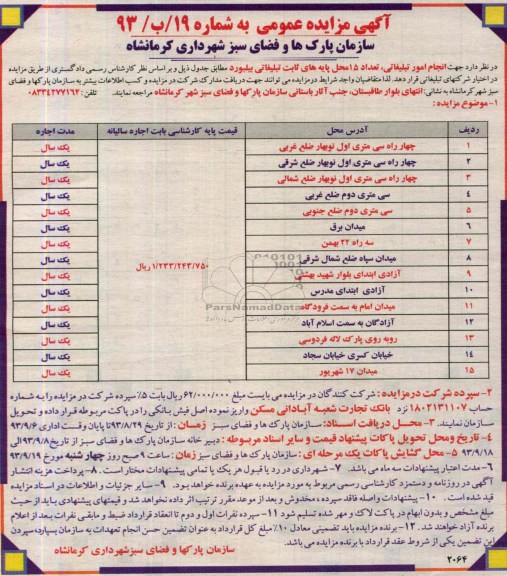 آگهی مزایده عمومی به شماره ۱۹/ب/۹۳
سازمان پارک ها و فضای سبز شهرداری کرمانشاه
در نظر دارد جهت انجام امور تبلیغاتی، تعداد ۱۵ محل پایه های ثابت تبلیغاتی بیلبورد مطابق جدول ذیل و بر اساس نظر کارشناس رسمی دادگستری از طریق مزایده
در اختیار شرکتهای تبلیغاتی قرار دهد. لذا متقاضیان واجد شرایط در مزایده می توانند جهت دریافت مدارک شرکت در مزایده و کسب اطلاعات بیشتر به سازمان پارکها و فضای
سبز شهر کرمانشاه به نشانی: انتهای بلوار طاقبستان، جنب آثار باستانی سازمان پارکها و فضای سبز شهر کرمانشاه مراجعه نمایند. تلفن: ۰۸۳۳۴۲۷۷۱۶۲
۱- موضوع مزایده:
ردیف آدرس محل قیمت پایه کارشناسی بابت اجاره سالیانه مدت اجاره
۱ چهار راه سی متری اول نوبهار ضلع غربی یک سال
۲ چهار راه سی متری اول نوبهار ضلع شرقی یک سال
۳ چهار راه سی متری اول نوبهار ضلع شمالی یک سال
۴ سی متری دوم ضلع غربی یک سال
۵ سی متری دوم ضلع جنوبی یک سال
۶ میدان برق یک سال
۷ سه راه ۲۲ بهمن یک سال
۸ میدان سپاه ضلع شمال شرقی ۱/۲۳۳/۲۴۳/۷۵۰ ریال یک سال
۹ آزادی ابتدای بلوار شهید بهشتی یک سال
۱۰ آزادی ابتدای مدرس یک سال
۱۱ میدان امام به سمت فرودگاه یک سال
۱۲ آزادگان به سمت اسلام آباد یک سال
۱۳ روبه روی پارک لاله فردوسی یک سال
۱۴ خیابان کسری خیابان سجاد یک سال
۱۵ میدان ۱۷ شهریور یک سال
ParsNamadData
۲- سپرده شرکت در مزایده: شرکت کنندگان در مزایده می بایست مبلغ ۶۲/۰۰۰/۰۰۰ ریال بابت ۵٪ سپرده شرکت در مزایده را به شماره
حساب ۱۸۰۲۱۳۱۱۰۷ نزد بانک تجارت شعبه آبادانی مسکن واریز نموده اصل فیش بانکی را در پاکت مربوطه قرار داده و تحویل
سازمان نمایند. ۳- محل دریافت اسناد: سازمان پارک ها و فضای سبز زمان: از تاریخ ۹۳/۸/۲۹ تا پایان وقت اداری ۹۳/۹/۶
۴- تاریخ و محل تحویل پاکات پیشنهاد قیمت و سایر اسناد مربوطه: دبیر خانه سازمان پارک ها و فضای سبز از تاریخ ۹۳/۹/۸ الی
۹۳/۹/۱۸ ۵- محل گشایش پاکات یک مرحله ای: سازمان پارک ها و فضای سبز زمان: ساعت ۹ صبح روز چهار شنبه مورخ ۹۳/۹/۱۹
۶- مدت اعتبار پیشنهادات سه ماه می باشد. ۷- شهرداری در رد یا قبول هر یک یا تمامی پیشنهادات مختار است. ۸- پرداخت هزینه انتشار
آگهی در روزنامه و دستمزد کارشناسی رسمی مربوط به مورد مزایده به عهده برنده خواهد بود. ۹- سایر جزئیات و اطلاعات در اسناد مزایده
قید شده است. ۱۰- پیشنهادات واصله فاقد سپرده، مخدوش و بعد از موعد مقرر ترتیب اثر داده نخواهد شد و قیمتهای پیشنهادی باید از حیث
مبلغ مشخص و بدون ابهام در پاکت لاک و مهر شده تسلیم شود ۱۱- سپرده نفرات اول و دوم تا انعقاد قرارداد ضبط و مابقی نفرات بعد از اعلام
برنده آزاد خواهند شد. ۱۲- برنده مزایده باید تضمینی معادل ۱۰٪ مبلغ کل قرارداد به عنوان تضمین حسن انجام تعهدات به سازمان بسپارد، سپردن
این تضمین یکی از شروط عقد قرارداد با برنده مزایده می باشد.
سازمان پارکها و فضای سبز شهرداری کرمانشاه
۲۰۶۴